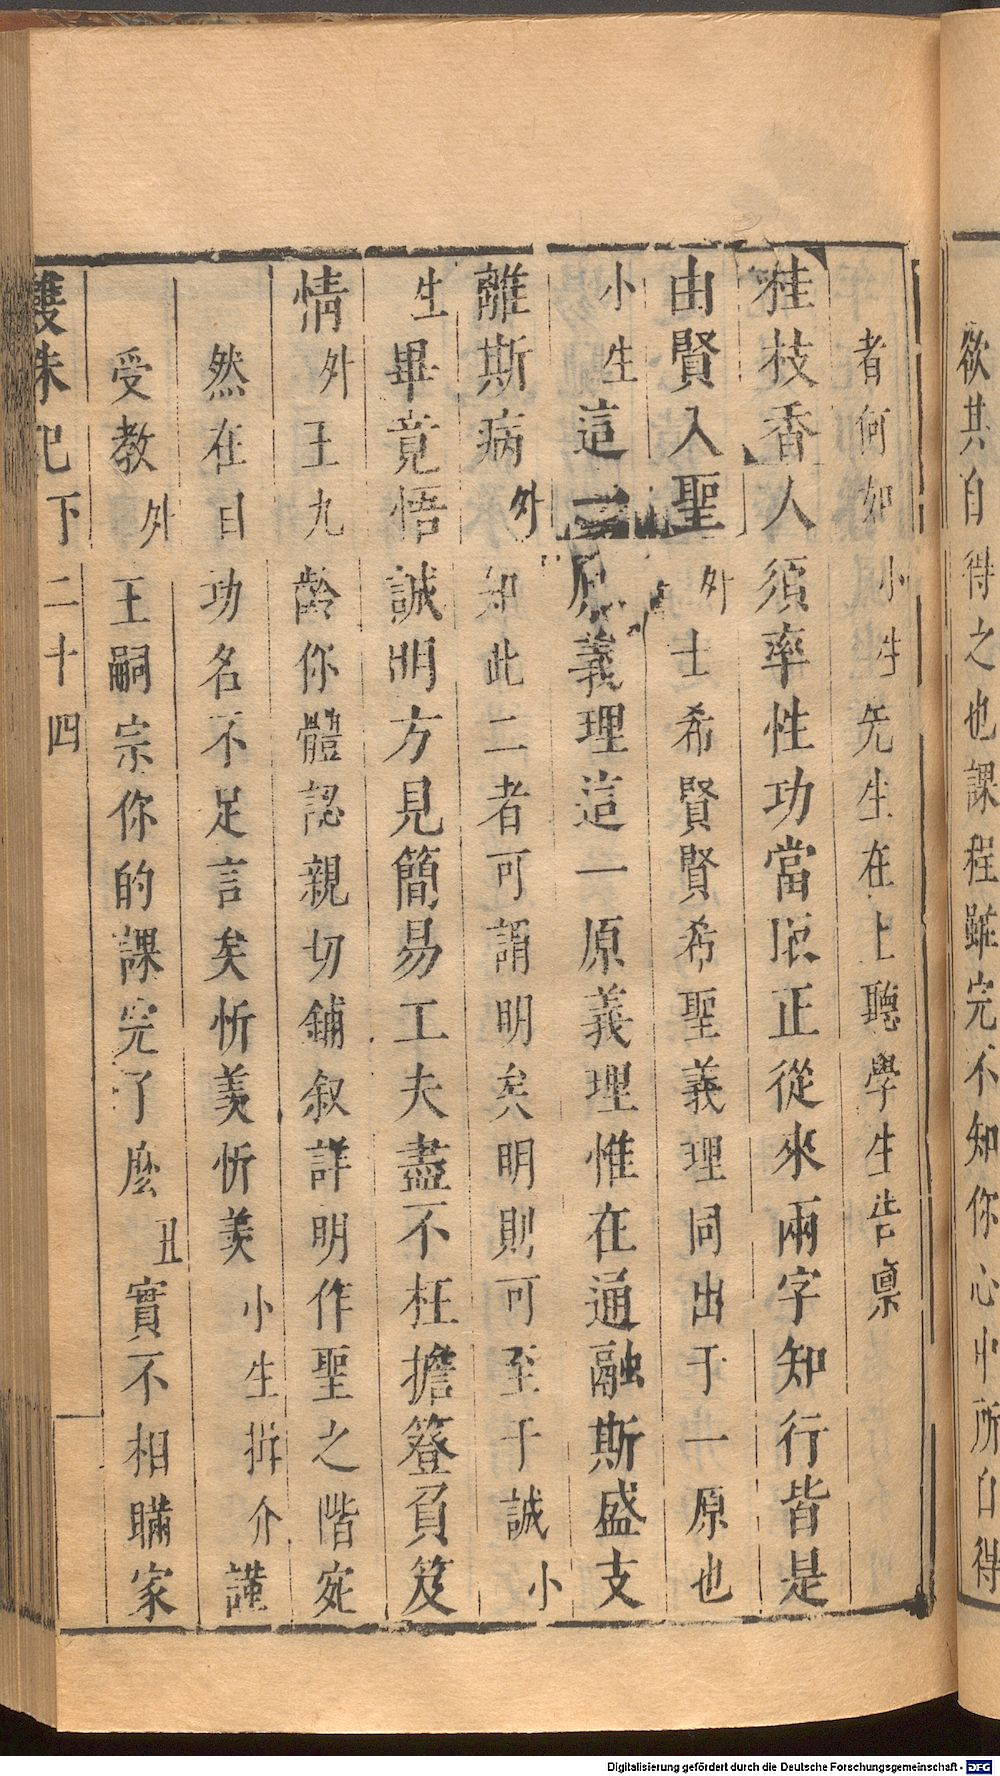 欲其自得之也課程雖完不知你心中所自得
者何如小生先生在上聽學生告稟
桂枝香人須率性功當居正從來兩字知行皆是
由賢入聖外士希賢賢希聖義理同出于一原也
小生這一原義理這一原義理惟在通融斯盛支
離斯病外知此二者可謂明矣明則可至于誠小
生畢竟悟誠明方見簡易工夫盡不枉擔簦負笈
情外王九齡你體認親切鋪叙詳明作聖之階宛
然在目功名不足言矣忻羨忻羨小生拚介謹
受教外王嗣宗你的課完了麽丑實不相瞞家
雙珠記下 二十四
Digitalisierung gefördert durch die Deutsche Forschungsgemeinschaft - DFG